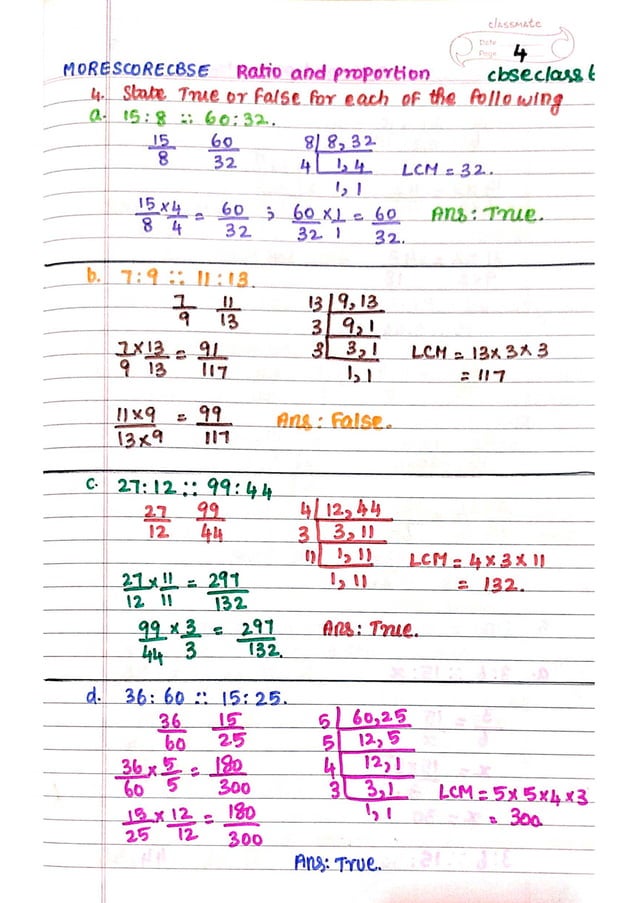 classmate
Date
Page 4
MORESCORECBSE Ratio and proportion cbseclass 6
4. State True or False for each of the following
a. 15:8 :: 60:32.
15/8 60/32 8 | 8, 32
4 | 1, 4 LCM = 32.
1, 1
15/8 × 4/4 = 60/32 ; 60/32 × 1/1 = 60/32. Ans: True.
b. 7:9 :: 11:13.
7/9 11/13 13 | 9, 13
3 | 9, 1
7/9 × 13/13 = 91/117 3 | 3, 1 LCM = 13 × 3 × 3
1, 1 = 117
11×9/13×9 = 99/117 Ans: False.
c. 27:12 :: 99:44
27/12 99/44 4 | 12, 44
3 | 3, 11
11 | 1, 11 LCM = 4 × 3 × 11
27/12 × 11/11 = 297/132 1, 11 = 132.
99/44 × 3/3 = 297/132. Ans: True.
d. 36:60 :: 15:25.
36/60 15/25 5 | 60, 25
5 | 12, 5
36/60 × 5/5 = 180/300 4 | 12, 1
3 | 3, 1 LCM = 5 × 5 × 4 × 3
15/25 × 12/12 = 180/300 1, 1 = 300
Ans: True.